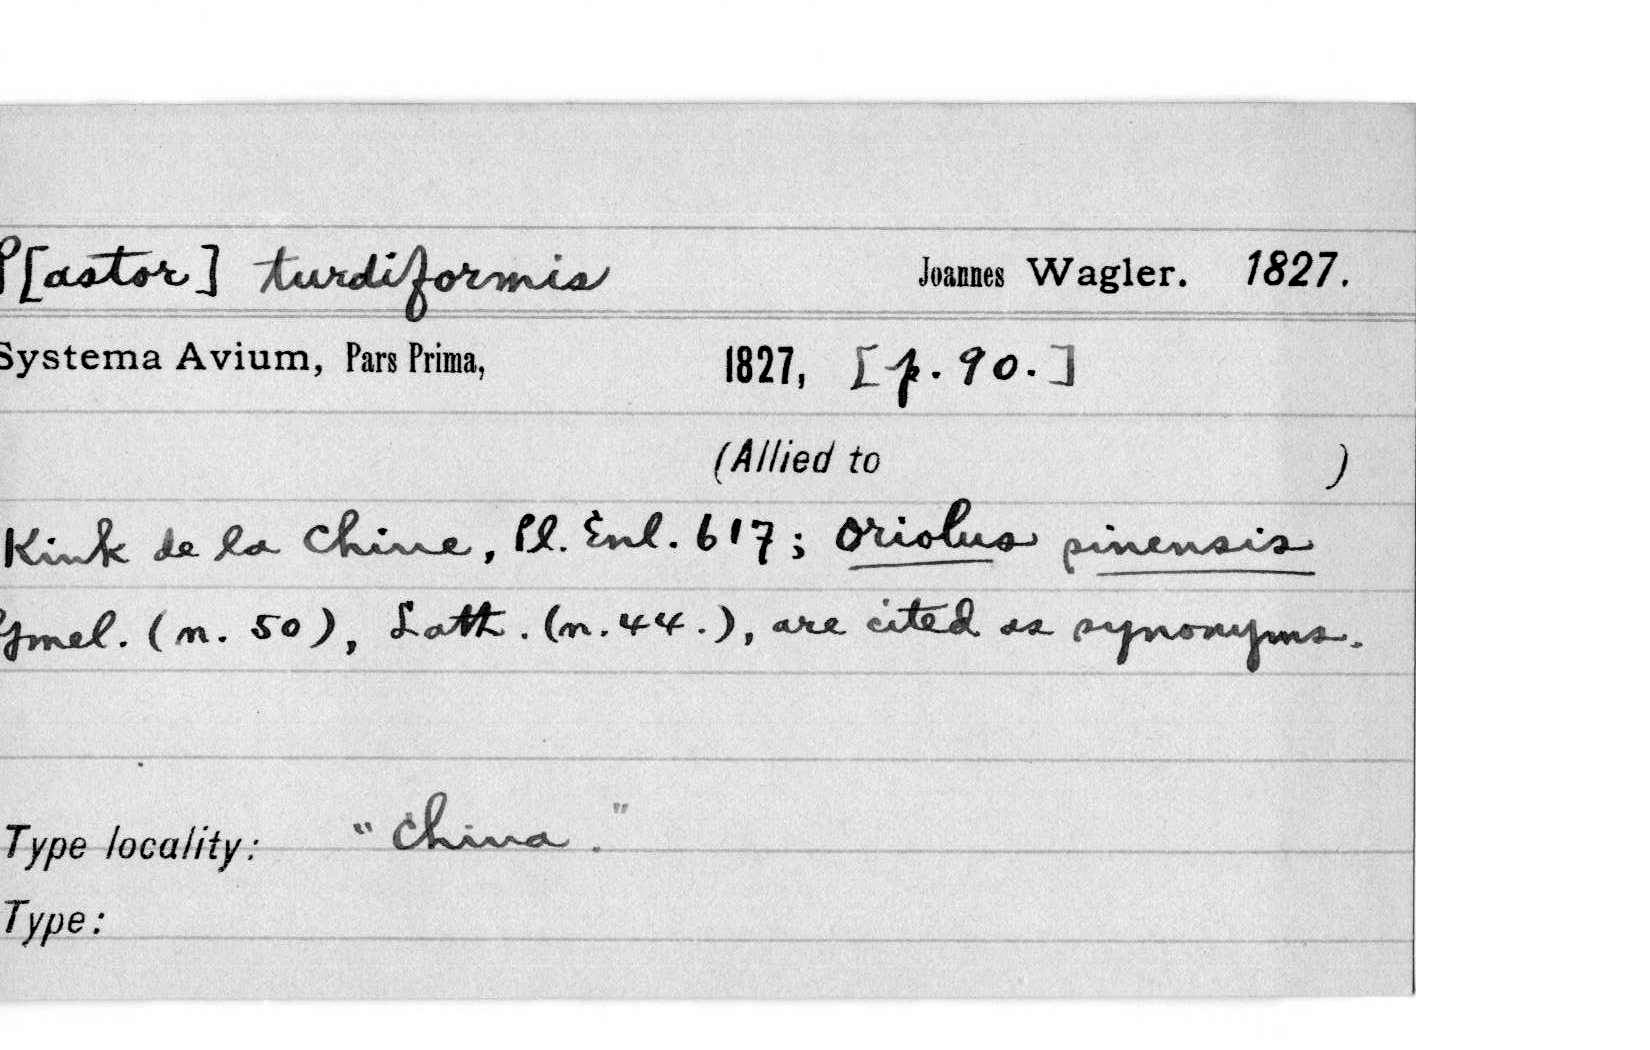 P[astor] turdiformis Joannes Wagler. 1827.
Systema Avium, Pars Prima, 1827, [p. 90.]
(Allied to )
Kink de la Chine, Pl. Enl. 617; Oriolus sinensis
Gmel. (n. 50), Lath. (n. 44.), are cited as synonyms.
Type locality: "China."
Type: